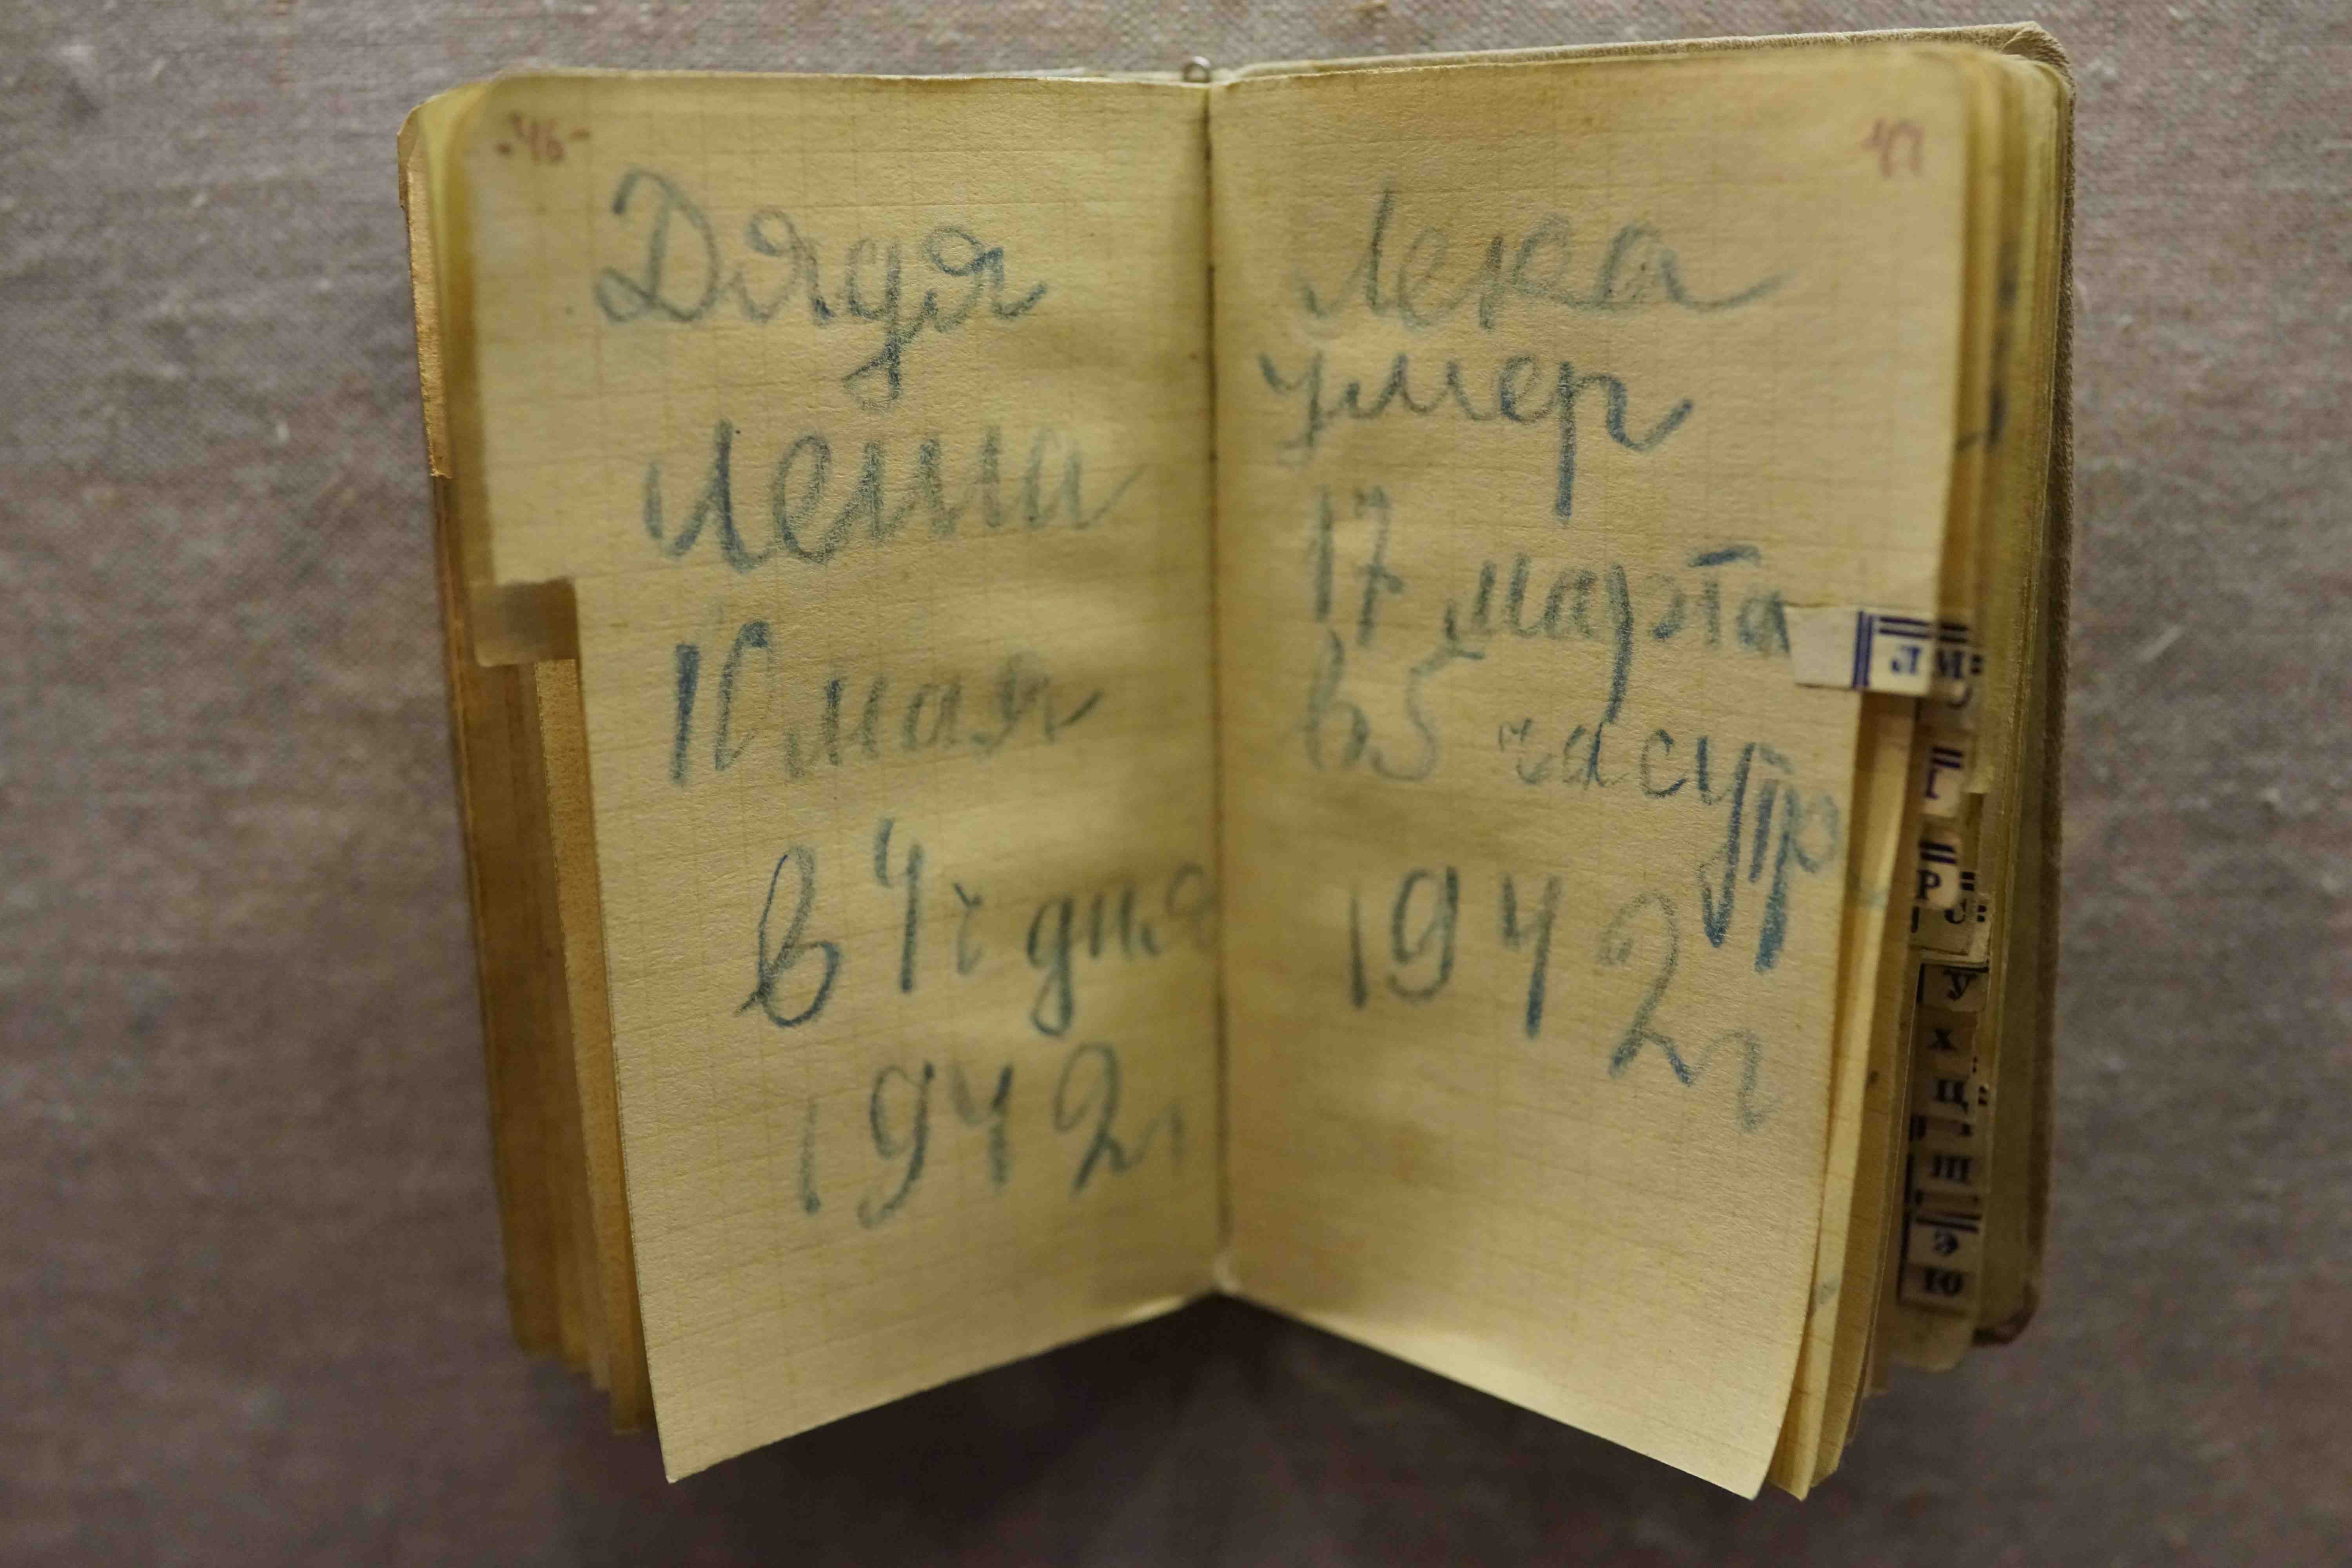 -46-
Дядя
Леша
10 мая
в 4 ч дня
1942г
47
Лека
умер
17 марта
в 5 часутр
1942г
Л М
Р С
У
Х
Ц
Ш
Э
Ю